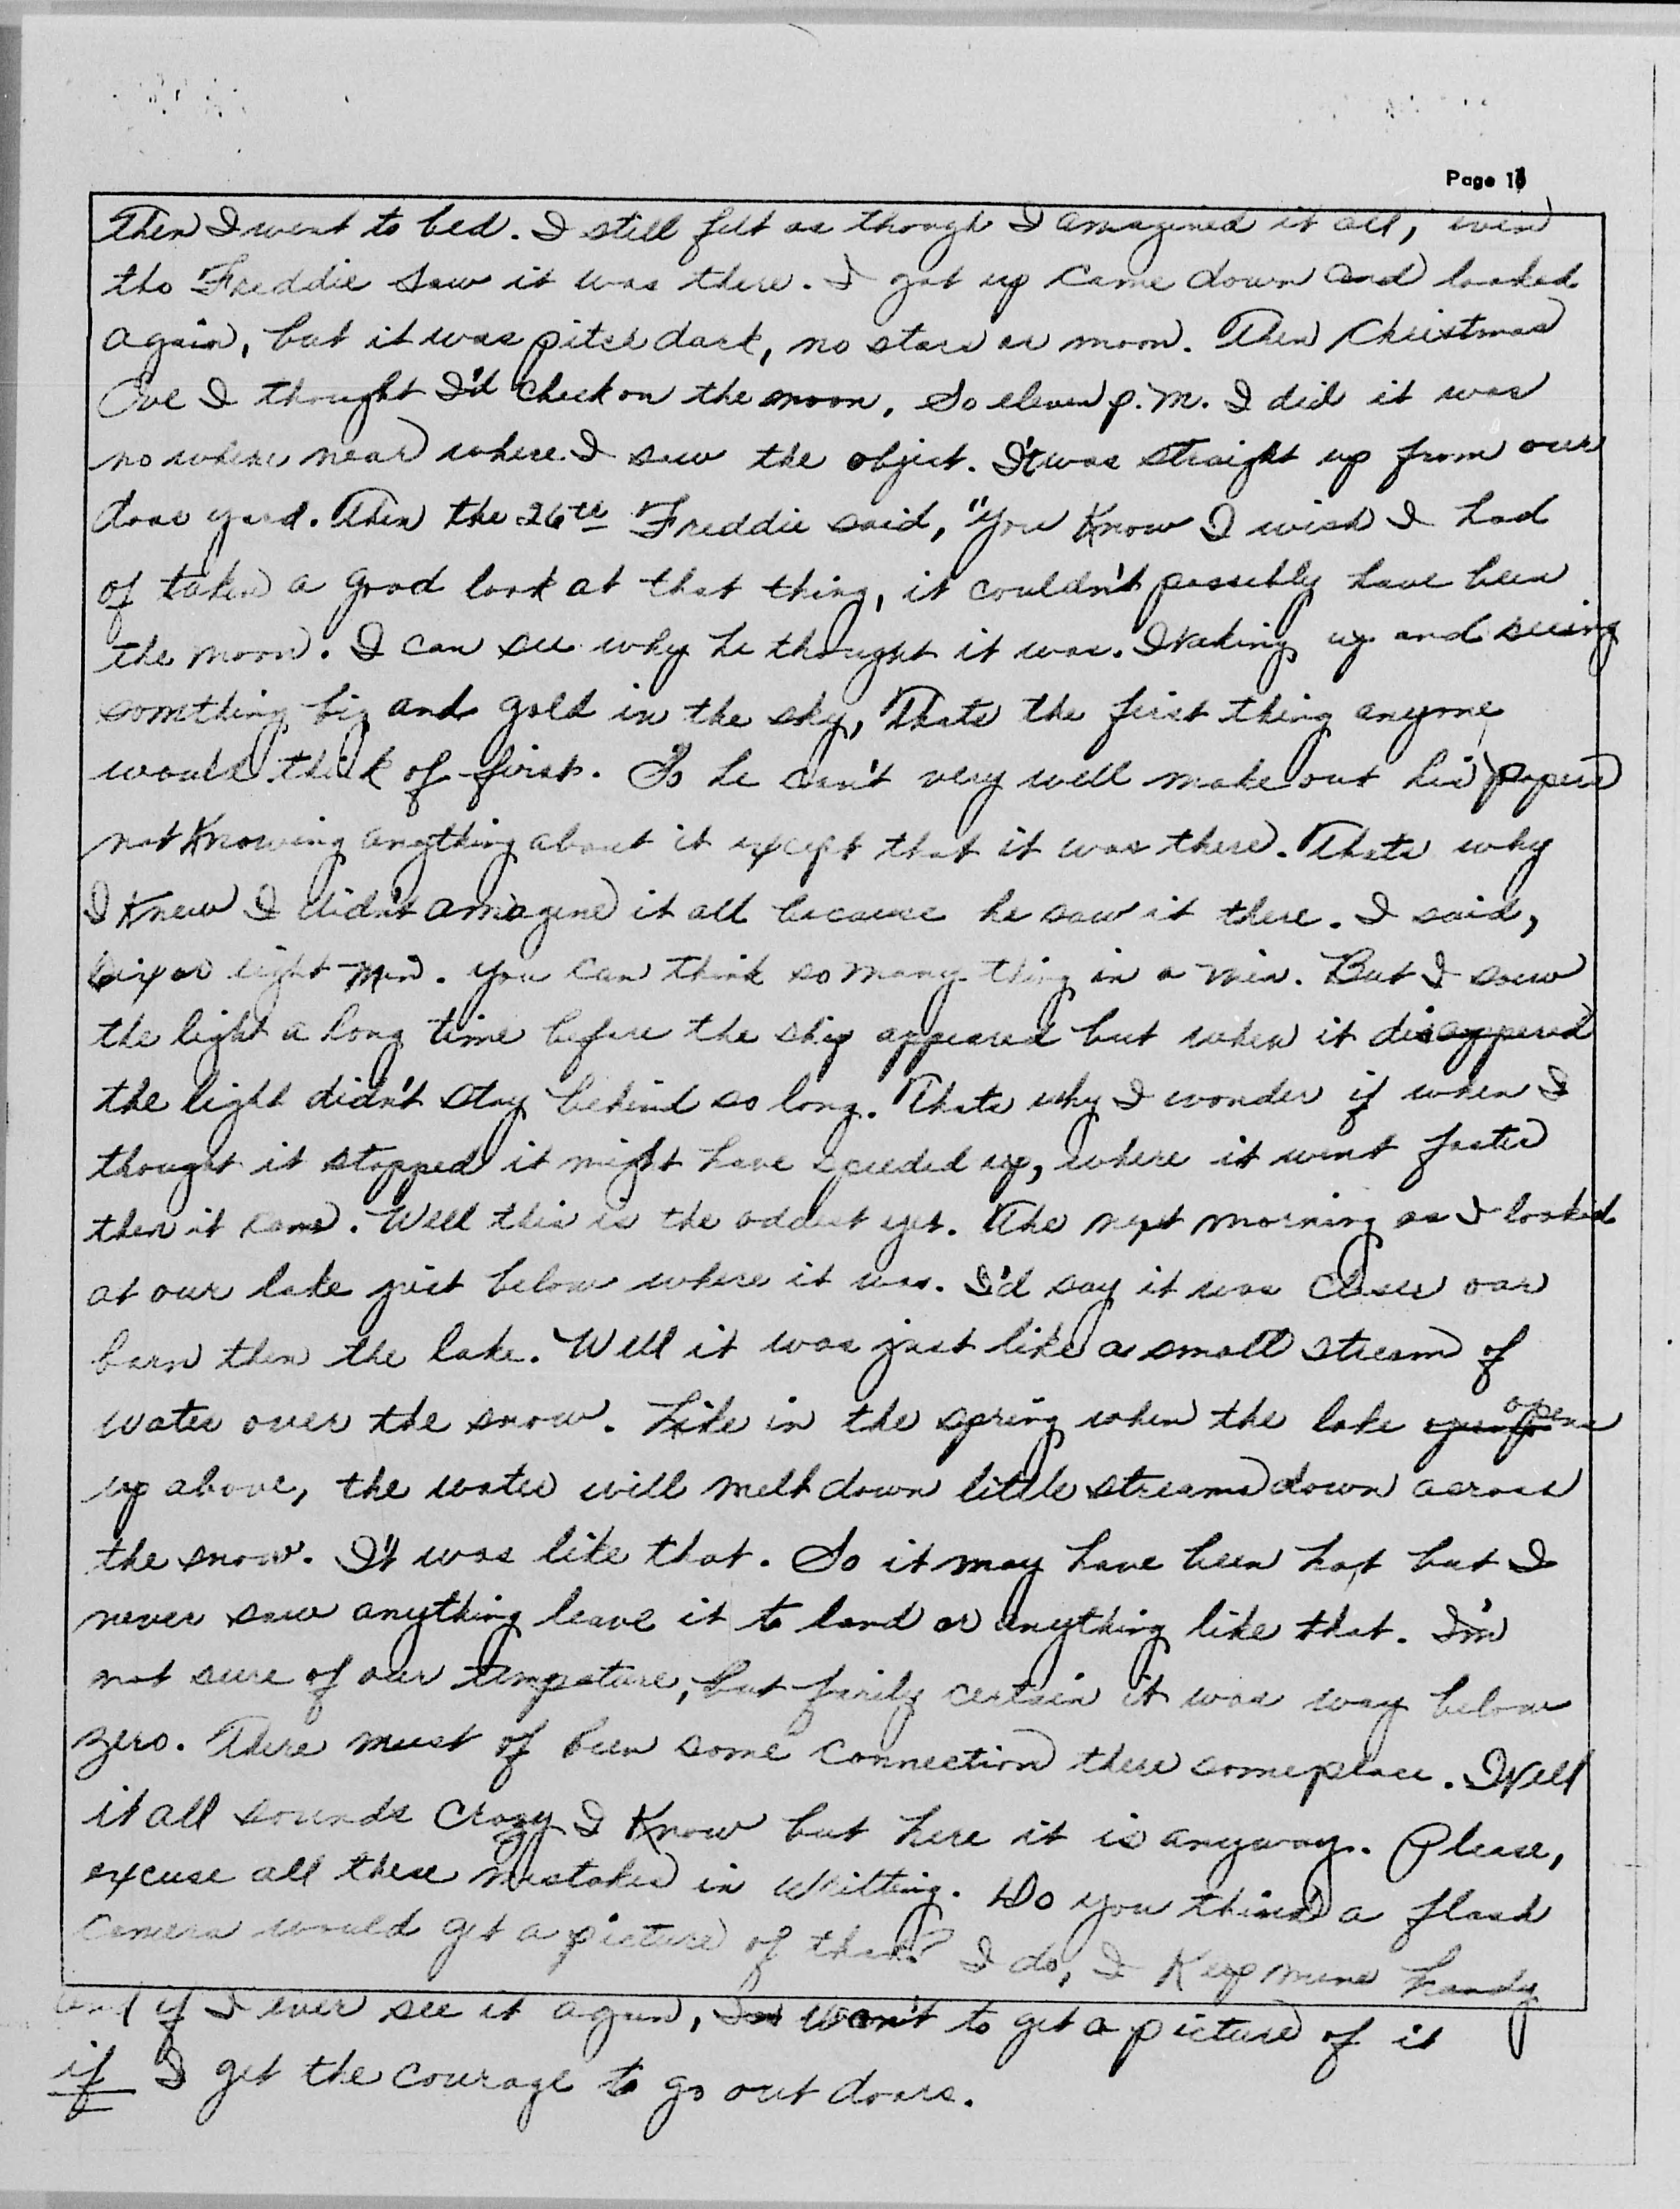 Page 1
Then I went to bed. I still felt as though I amagined it all, even
tho Freddie saw it was there. I got up came down and looked
again, but it was pitch dark, no stars or moon. Then Christmas
Eve I thought I'd check on the moon. So eleven p.m. I did it was
no where near where I saw the object. It was straight up from our
door yard. Then the 26th Freddie said, "You know I wish I had
of taken a good look at that thing, it couldn't possibly have been
the moon. I can see why he thought it was. Waking up and seeing
somthing big and gold in the sky, Thats the first thing anyone
would think of first. So he can't very well make out his papers
not knowing anything about it except that it was there. Thats why
I knew I didn't amagine it all because he saw it there. I said,
six or eight min. you can think so many thing in a min. But I saw
the light a long time before the ship appeared but when it disappered
the light didn't stay behind so long. Thats why I wonder if when I
thought it stopped it might have speeded up, where it went faster
then it came. Well this is the oddest yet. The next morning as I looked
at our lake just below where it was. I'd say it was closer our
barn then the lake. Well it was just like a small stream of
water over the snow. Like in the spring when the lake opens
up above, the water will melt down little streams down across
the snow. It was like that. So it may have been hot but I
never saw anything leave it to land or anything like that. I'm
not sure of our tempature, but farily certain it was way below
zero. There must of been some connection there someplace. Well
it all sounds crazy I know but here it is anyway. Please,
excuse all these mistakes in writting. Do you think a flash
camera would get a picture of that? I do, I keep mine handy
and if I ever see it again, won't to get a picture of it
if I get the courage to go out doors.